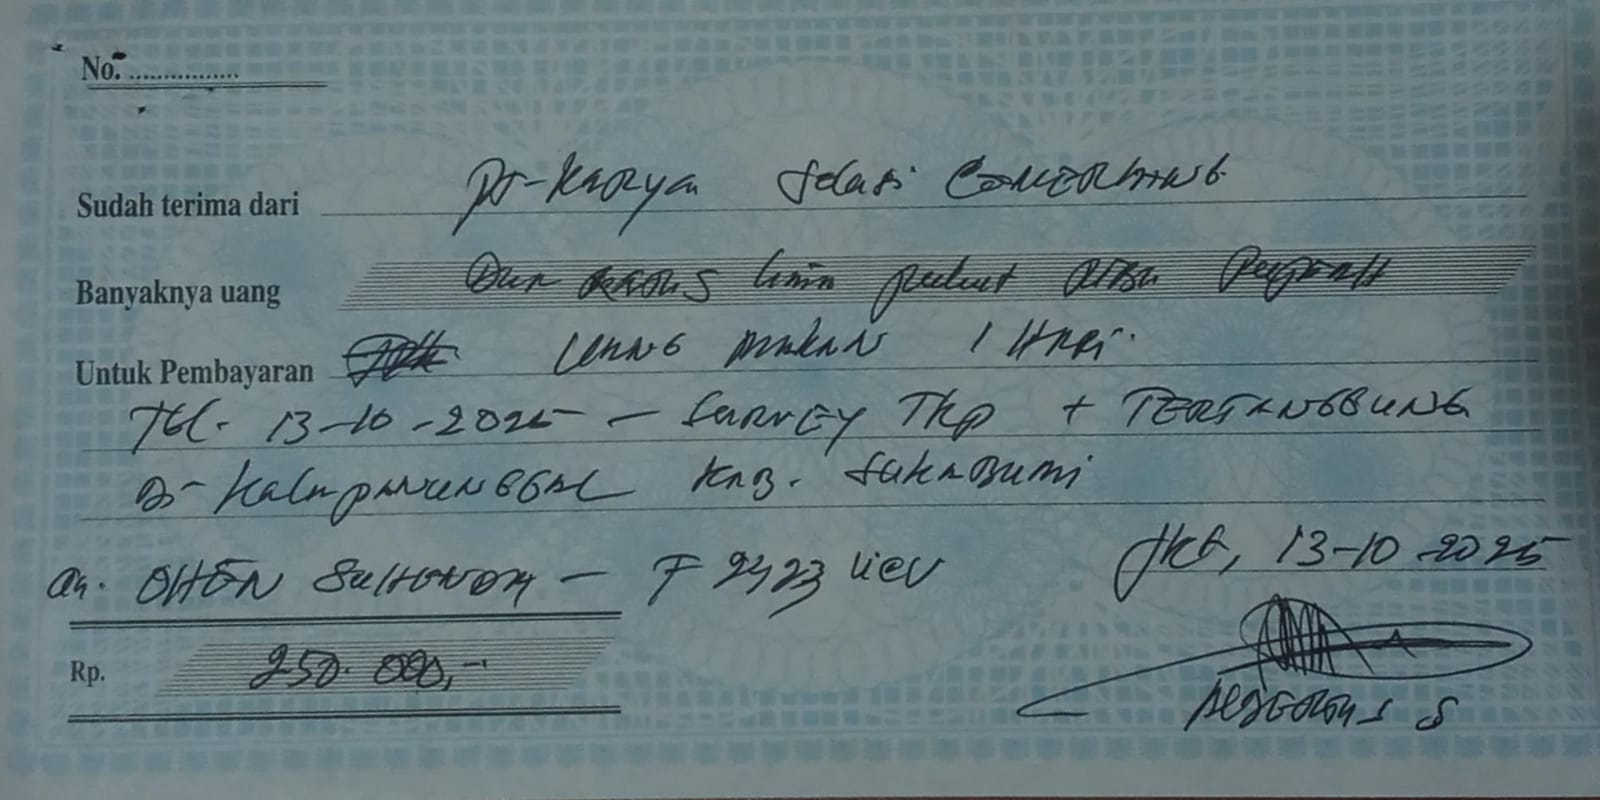 No. ................
Sudah terima dari PT-Karya Solusi
Banyaknya uang Dua Ratus lima puluh Ribu Rupiah
Untuk Pembayaran UANG MAKAN 1 HARI.
TGL. 13-10-2025 - SURVEY TKP + TERTANGGUNG
Di- KALAPANUNGGAL KAB. SUKABUMI
an. - F 2423
Jkt, 13-10-2025
Rp. 250.000,-